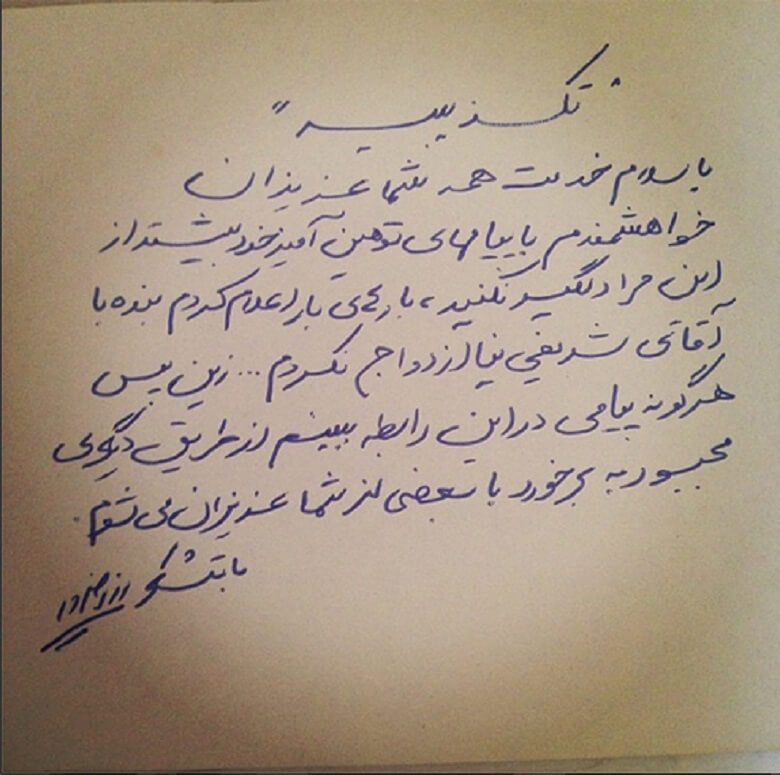 "تکذیبیه"
با سلام خدمت همه شما عزیزان
خواهشمندم با پیامهای توهین آمیز خود بیشتر از
این مرا دلگیر نکنید، بارها و بار اعلام کردم بنده با
آقای شریفی نیا ازدواج نکردم... زین پس
هرگونه پیامی در این رابطه ببینم از طریق دیگری
مجبور به برخورد با بعضی از شما عزیزان می شوم.
با تشکر